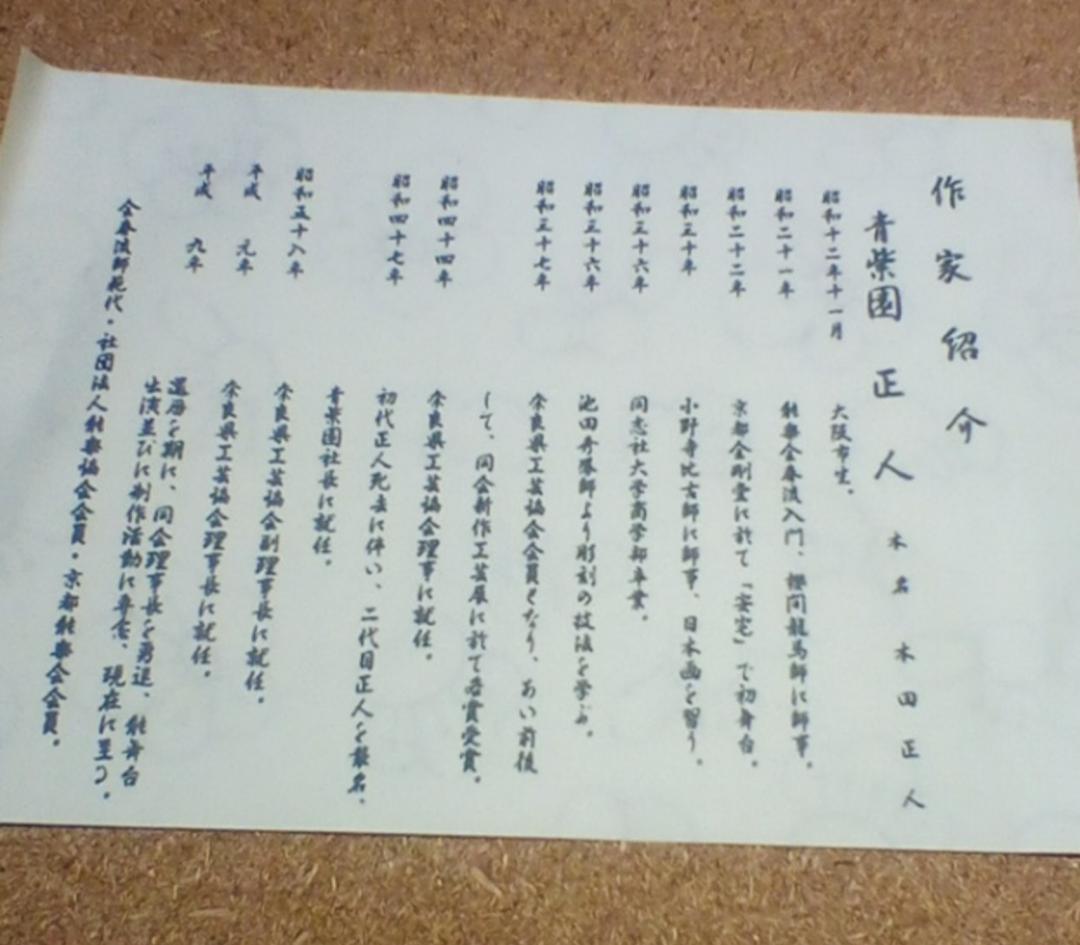 作家紹介
青柴園 正人 本名 本田正人
昭和十二年十一月 大阪市生。
昭和二十一年 能楽金春流入門、櫻間龍馬師に師事。
昭和二十二年 京都金剛堂に於て「安宅」で初舞台。
昭和三十年 小野寺比古師に師事、日本画を習う。
昭和三十六年 同志社大学商学部卒業。
昭和三十六年 池田 師より彫刻の技法を学ぶ。
昭和三十七年 奈良県工芸協会会員となり、あい前後
して、同会新作工芸展に於て 賞受賞。
昭和四十四年 奈良県工芸協会理事に就任。
昭和四十七年 初代正人死去に伴い、二代目正人を襲名、
青柴園社長に就任。
昭和五十八年 奈良県工芸協会副理事長に就任。
平成 元年 奈良県工芸協会理事長に就任。
平成 九年 還暦を期に、同会理事長を勇退、能舞台
出演並びに制作活動に専念、現在に至る。
金春流師範代・社団法人能楽協会会員・京都能楽会会員。